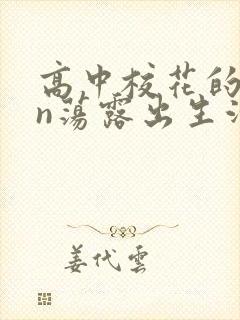 高中校花的
n蕩露出生
姜代雲